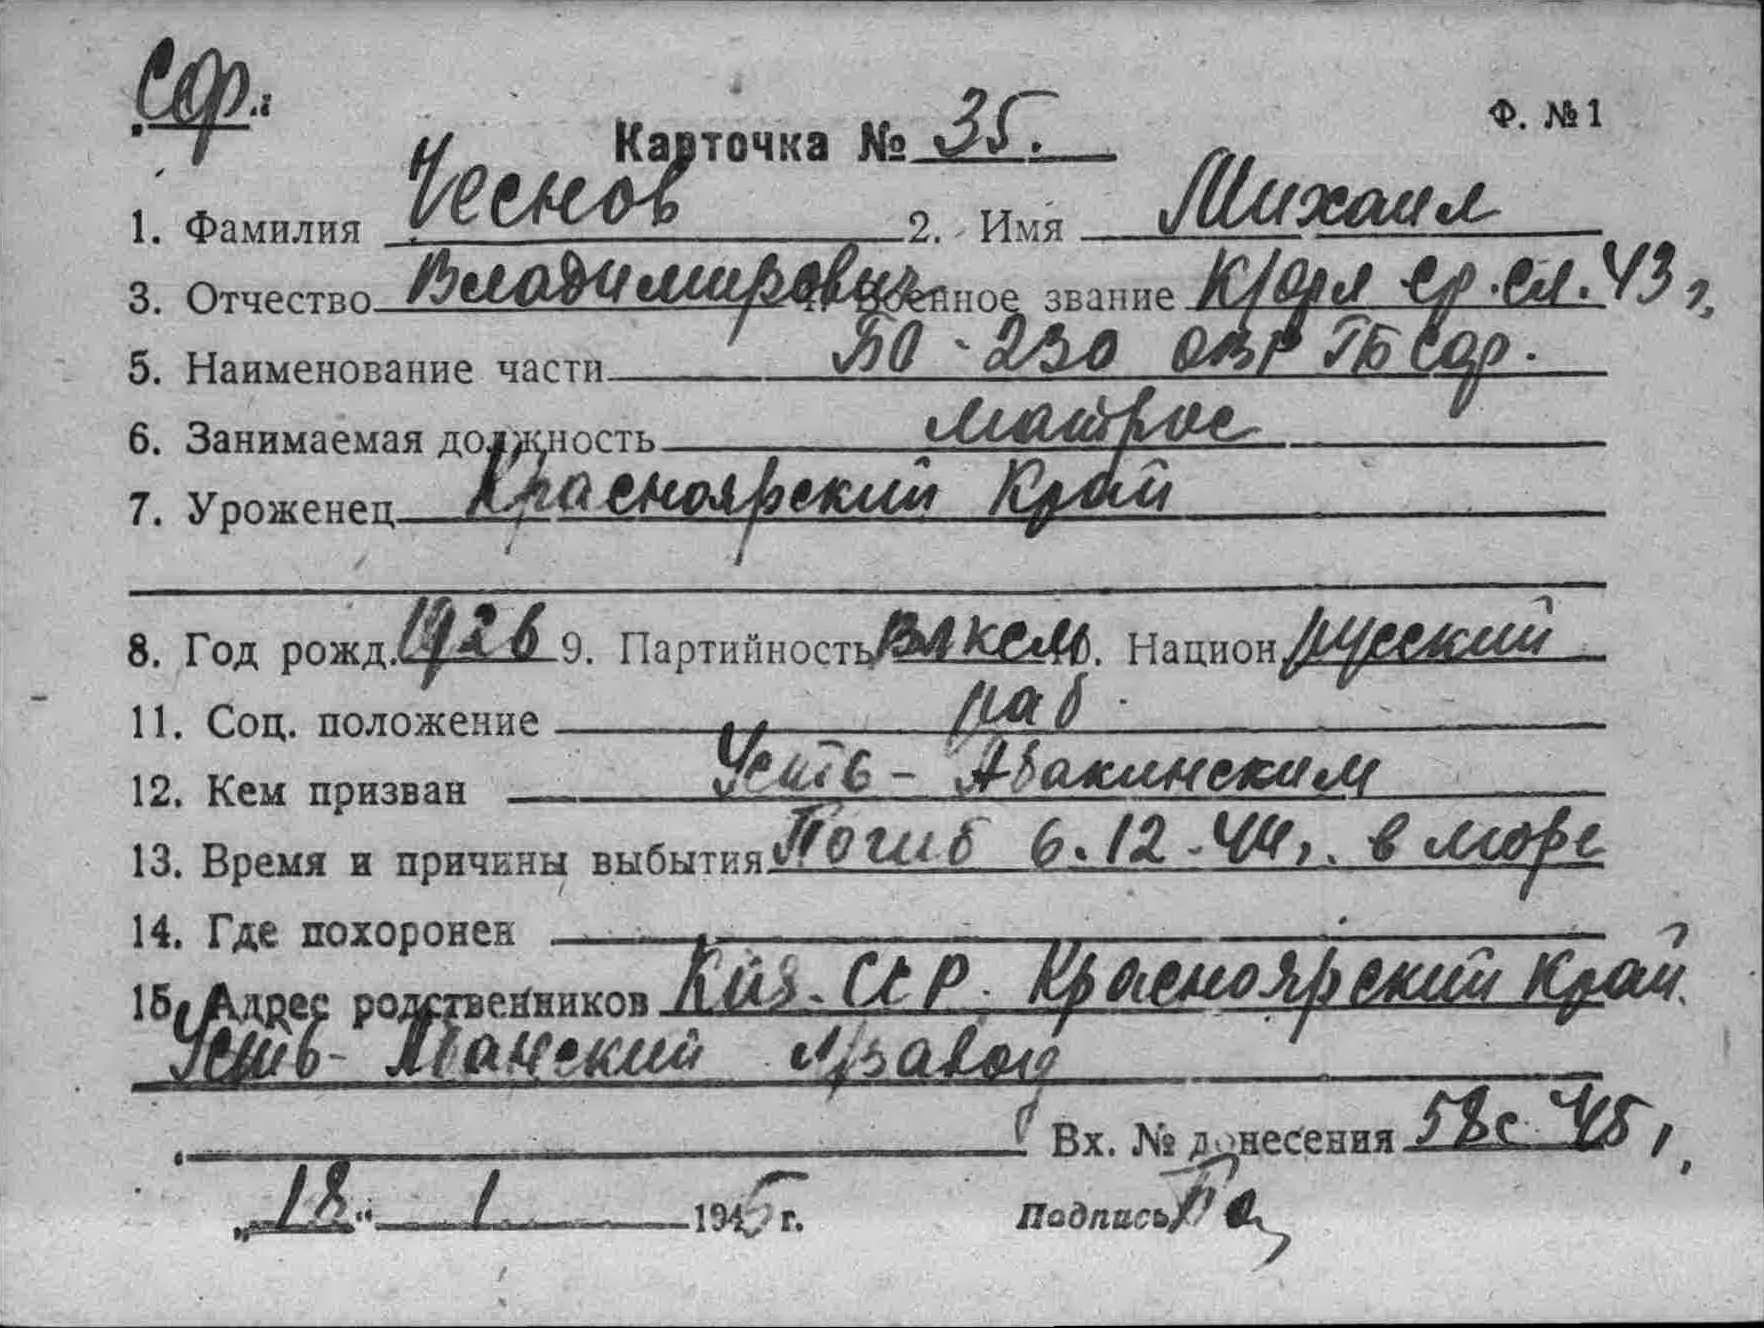 Сф.
Ф. № 1
Карточка № 35.
1. Фамилия Чеснов 2. Имя Михаил
3. Отчество Владимирович Военное звание К/фл ср. сл. 43 г.
5. Наименование части БО-230 ОВР ГБ Сф.
6. Занимаемая должность матрос
7. Уроженец Красноярский Край
8. Год рожд. 1926 9. Партийность ВЛКСМ 10. Национ. русский
11. Соц. положение раб.
12. Кем призван Усть-Абаканским
13. Время и причины выбытия Погиб 6.12.44 г. в море
14. Где похоронен
15. Адрес родственников ССР. Красноярский Край.
Усть-Манский завод
Вх. № донесения 58с 45 г.
„18“ 1 1945 г. Подпись